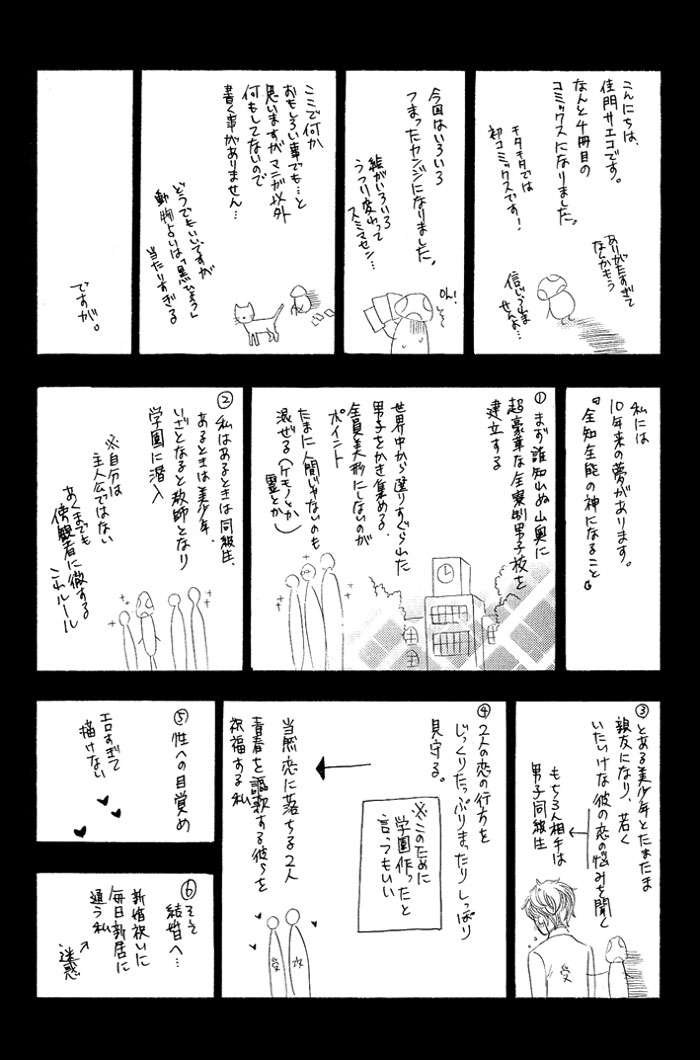 こんにちは、
佳門サエコです。
なんと4冊目の
コミックスになりました。
モタモタでは
初コミックスです!
ありがたすぎて
なんかもう
信じられま
せんよ…
今回はいろいろ
つまったカンジになりました。
絵がいろいろ
うつり変わって
スミマセン…
ここで何か
おもしろい事でも…と
思いますがマンガ以外
何もしてないので
書く事がありません…
どうでもいいですが
動物占いは「黒ひょう」
当たりすぎる
ですが。
私には
10年来の夢があります。
『全知全能の神になること』
① まず誰知れぬ山奥に
超豪華な全寮制男子校を
建立する
世界中から選りすぐられた
男子をかき集める。
全員美形にしないのが
ポイント
たまに人間じゃないのも
混ぜる(ケモノとか
霊とか)
② 私はあるときは同級生、
あるときは美少年、
いざとなると教師となり
学園に潜入
※自分は
主人公ではない
あくまでも
傍観者に徹する
これルール
③ とある美少年とたまたま
親友になり、若く
いたいけな彼の恋の悩みを聞く
もちろん相手は
男子同級生
受
④ 2人の恋の行方を
じっくりたっぷりまったりしっぽり
見守る。
※このために
学園作ったと
言ってもいい
当然恋に落ちる2人
青春を謳歌する彼らを
祝福する私
受
攻
⑤ 性への目覚め
エロすぎて
描けない
⑥ そして
結婚へ…
新婚祝いに
毎日新居に
通う私
迷惑